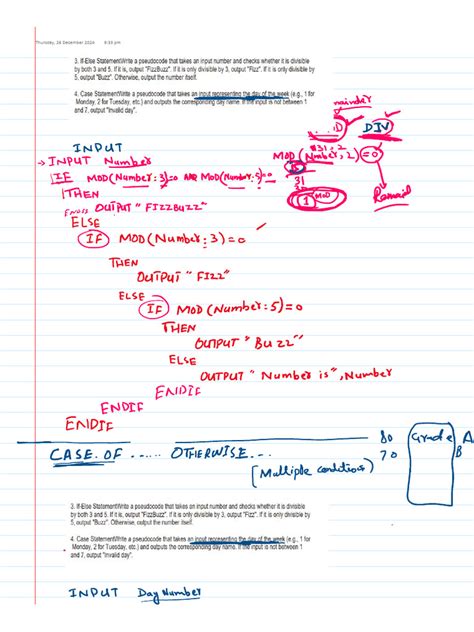 Thursday, 26 December 2024 8:19 pm
3. If-Else StatementWrite a pseudocode that takes an input number and checks whether it is divisible
by both 3 and 5. If it is, output "FizzBuzz". If it is only divisible by 3, output "Fizz". If it is only divisible by
5, output "Buzz". Otherwise, output the number itself.
4. Case StatementWrite a pseudocode that takes an input representing the day of the week (e.g., 1 for
Monday, 2 for Tuesday, etc.) and outputs the corresponding day name. If the input is not between 1
and 7, output "Invalid day".
DIV
INPUT
MOD(Number, 2)=0
→ INPUT Number
31
IF MOD(Number:3)=0 AND MOD(Number:5)=0
1 MOD
THEN
OUTPUT "FIZZBUZZ"
ELSE
IF MOD(Number:3)=0
THEN
OUTPUT "FIZZ"
ELSE
IF MOD(Number:5)=0
THEN
OUTPUT "BUZZ"
ELSE
OUTPUT "Number is", Number
ENDIF
ENDIF
ENDIF
80 Grade A
CASE OF ...... OTHERWISE... 70 B
(Multiple conditions)
3. If-Else StatementWrite a pseudocode that takes an input number and checks whether it is divisible
by both 3 and 5. If it is, output "FizzBuzz". If it is only divisible by 3, output "Fizz". If it is only divisible by
5, output "Buzz". Otherwise, output the number itself.
4. Case StatementWrite a pseudocode that takes an input representing the day of the week (e.g., 1 for
Monday, 2 for Tuesday, etc.) and outputs the corresponding day name. If the input is not between 1
and 7, output "Invalid day".
INPUT DayNumber